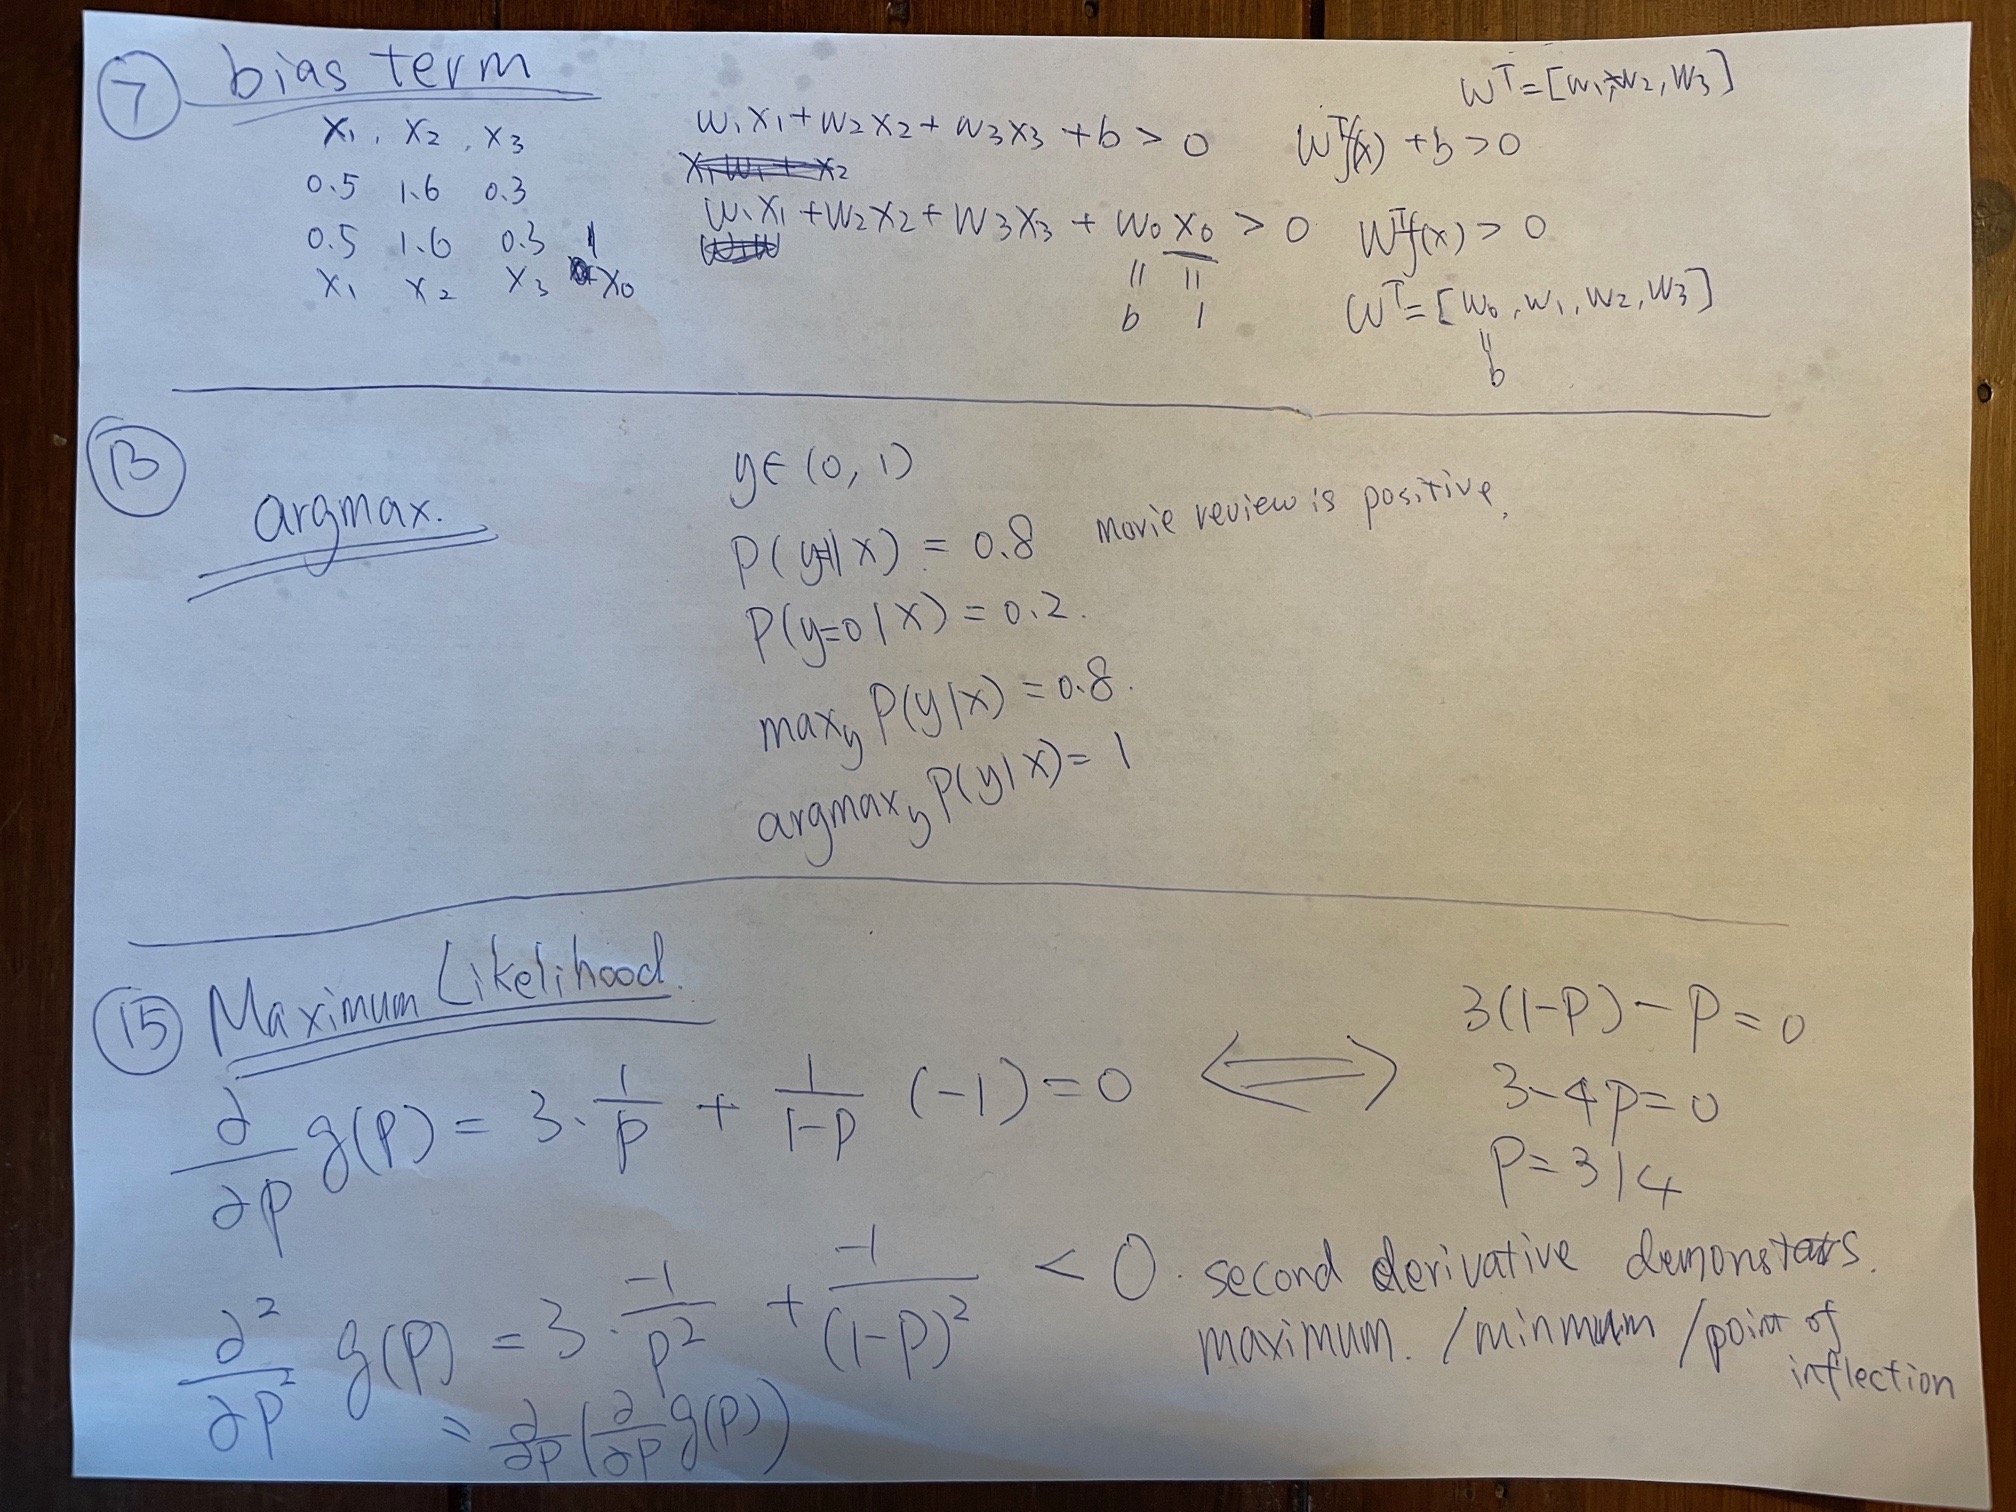 7 bias term
x₁, x₂, x₃
0.5 1.6 0.3
0.5 1.6 0.3 1
x₁ x₂ x₃ x₀
w₁x₁+w₂x₂+w₃x₃+b > 0
x₁w₁+x₂
w₁x₁+w₂x₂+w₃x₃+w₀x₀ > 0
|| ||
b 1
wᵀ=[w₁,w₂,w₃]
wᵀf(x)+b>0
wᵀf(x)>0
wᵀ=[w₀,w₁,w₂,w₃]
||
b
13
argmax.
y∈(0,1)
P(y=1|x) = 0.8 movie review is positive.
P(y=0|x) = 0.2.
max_y P(y|x) = 0.8.
argmax_y P(y|x) = 1
15 Maximum Likelihood.
∂/∂p g(p) = 3·1/p + 1/(1-p) (-1) = 0 ⟺
3(1-p)-p=0
3-4p=0
p=3/4
∂²/∂p² g(p) = 3·-1/p² + -1/(1-p)² < 0. second derivative
maximum. / / point of
inflection
= ∂/∂p(∂/∂p g(p))